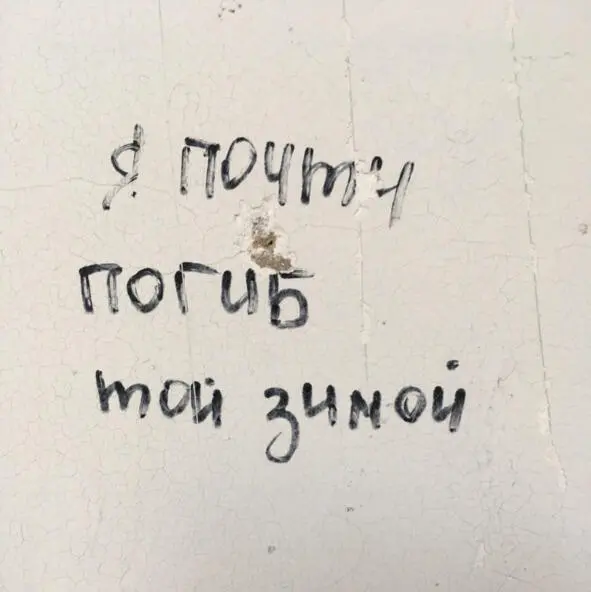 Я почти
погиб
той зимой